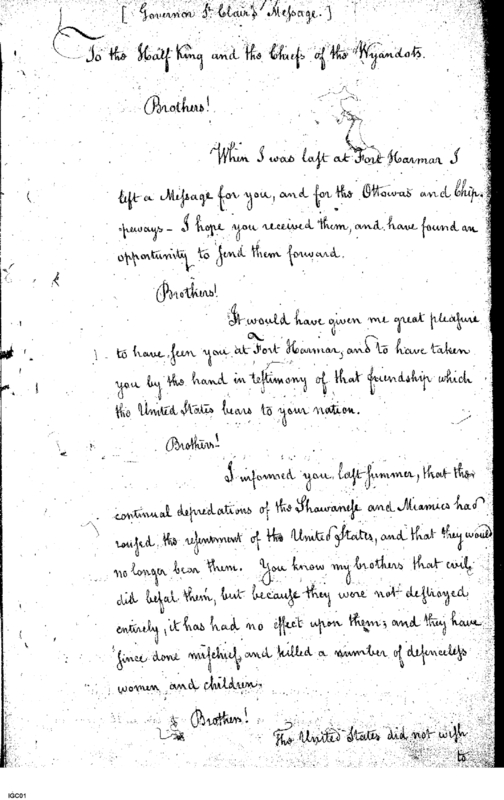 [ Governor St. Clair's Message. ]
To the Half King and the Chiefs of the Wyandots.
Brothers!
When I was last at Fort Harmar I
left a Message for you, and for the Ottowas and Chip-
peways - I hope you received them, and have found an
opportunity to send them forward.
Brothers!
It would have given me great pleasure
to have seen you at Fort Harmar, and to have taken
you by the hand in testimony of that friendship which
the United States bears to your nation.
Brothers!
I informed you, last summer, that the
continual depredations of the Shawanese and Miamies had
roused the resentment of the United States, and that they would
no longer bear them. You know my brothers that evil
did befal them, but because they were not destroyed
entirely, it has had no effect upon them; and they have
since done mischief, and killed a number of defenceless
women and children.
Brothers!
The United States did not wish
to
IGC01